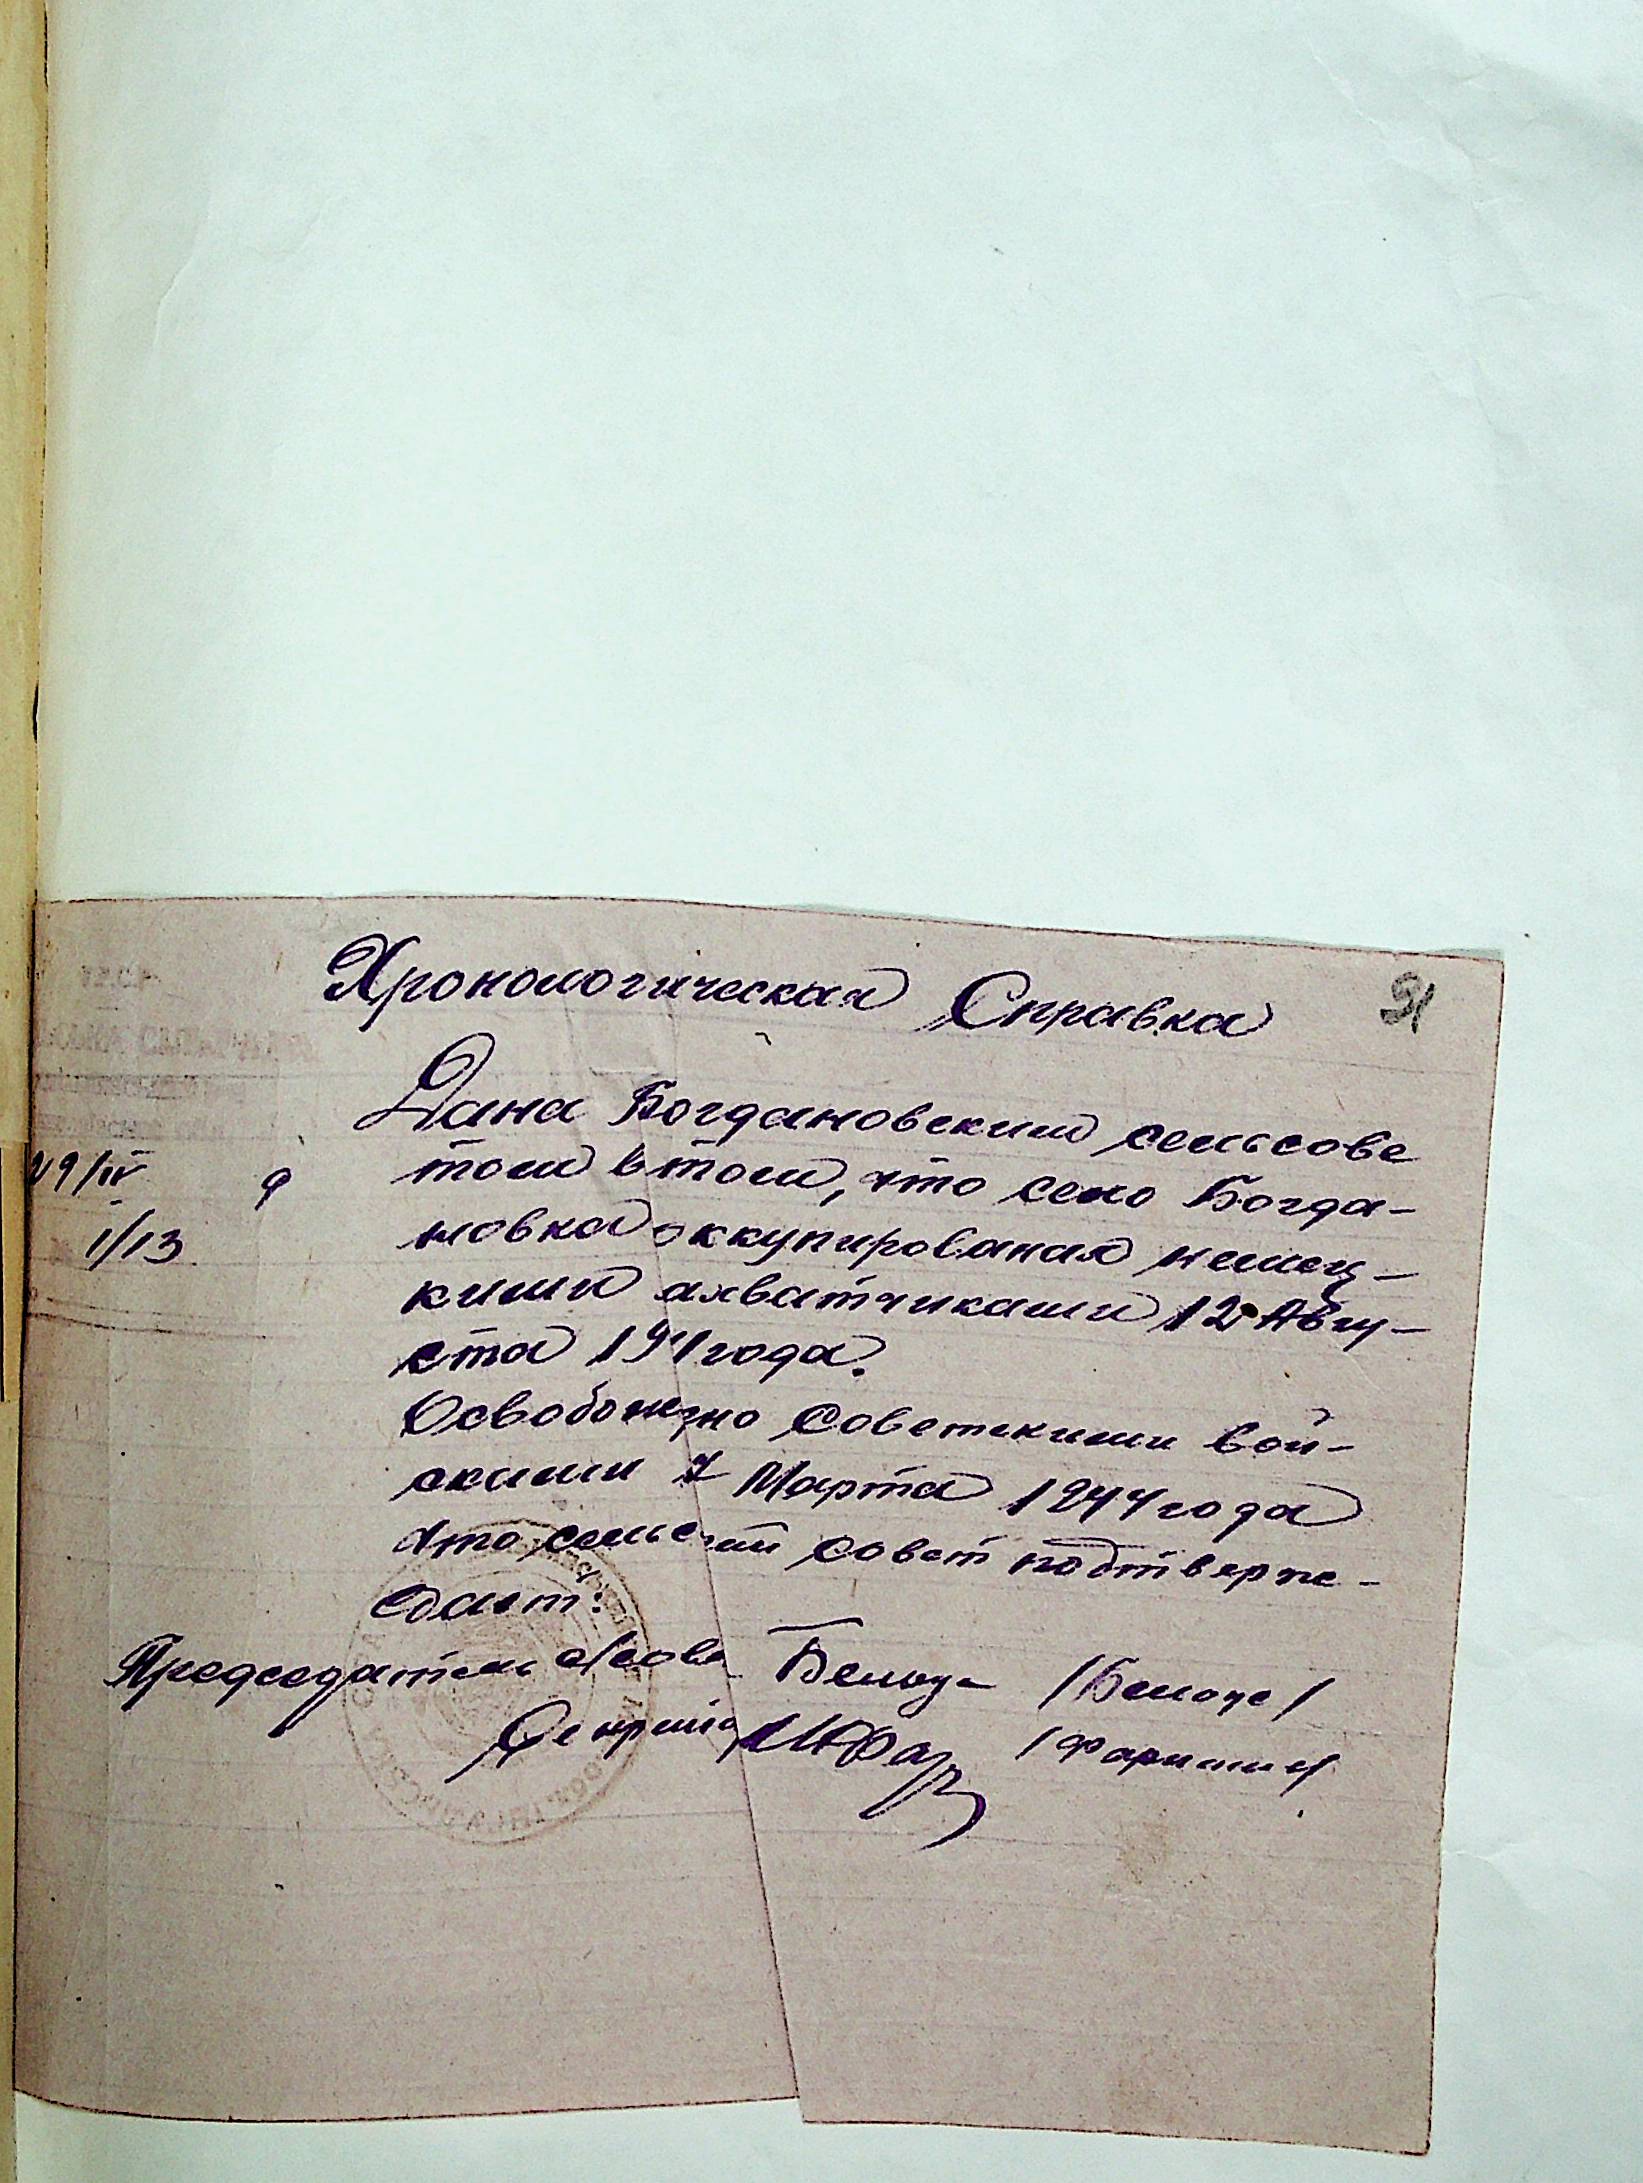 Хронологическая Справка
91
Дана Богдановским сельсове
том в том, что село Богда-
новка оккупированая немец-
кими ахватчиками 12 Авгу-
ста 1941 года.
Освобожено Советскими вой-
сками 7 Марта 1944 года
Што сельский совет подтверж-
дает.
29/IV
1/13
Председатель с/сове Белоус /Белоус/
Секрета